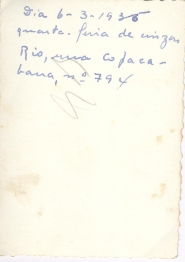 Dia 6-3-1935
quarta-feria de cinzas
Rio, rua Copaca-
bana, nº 794